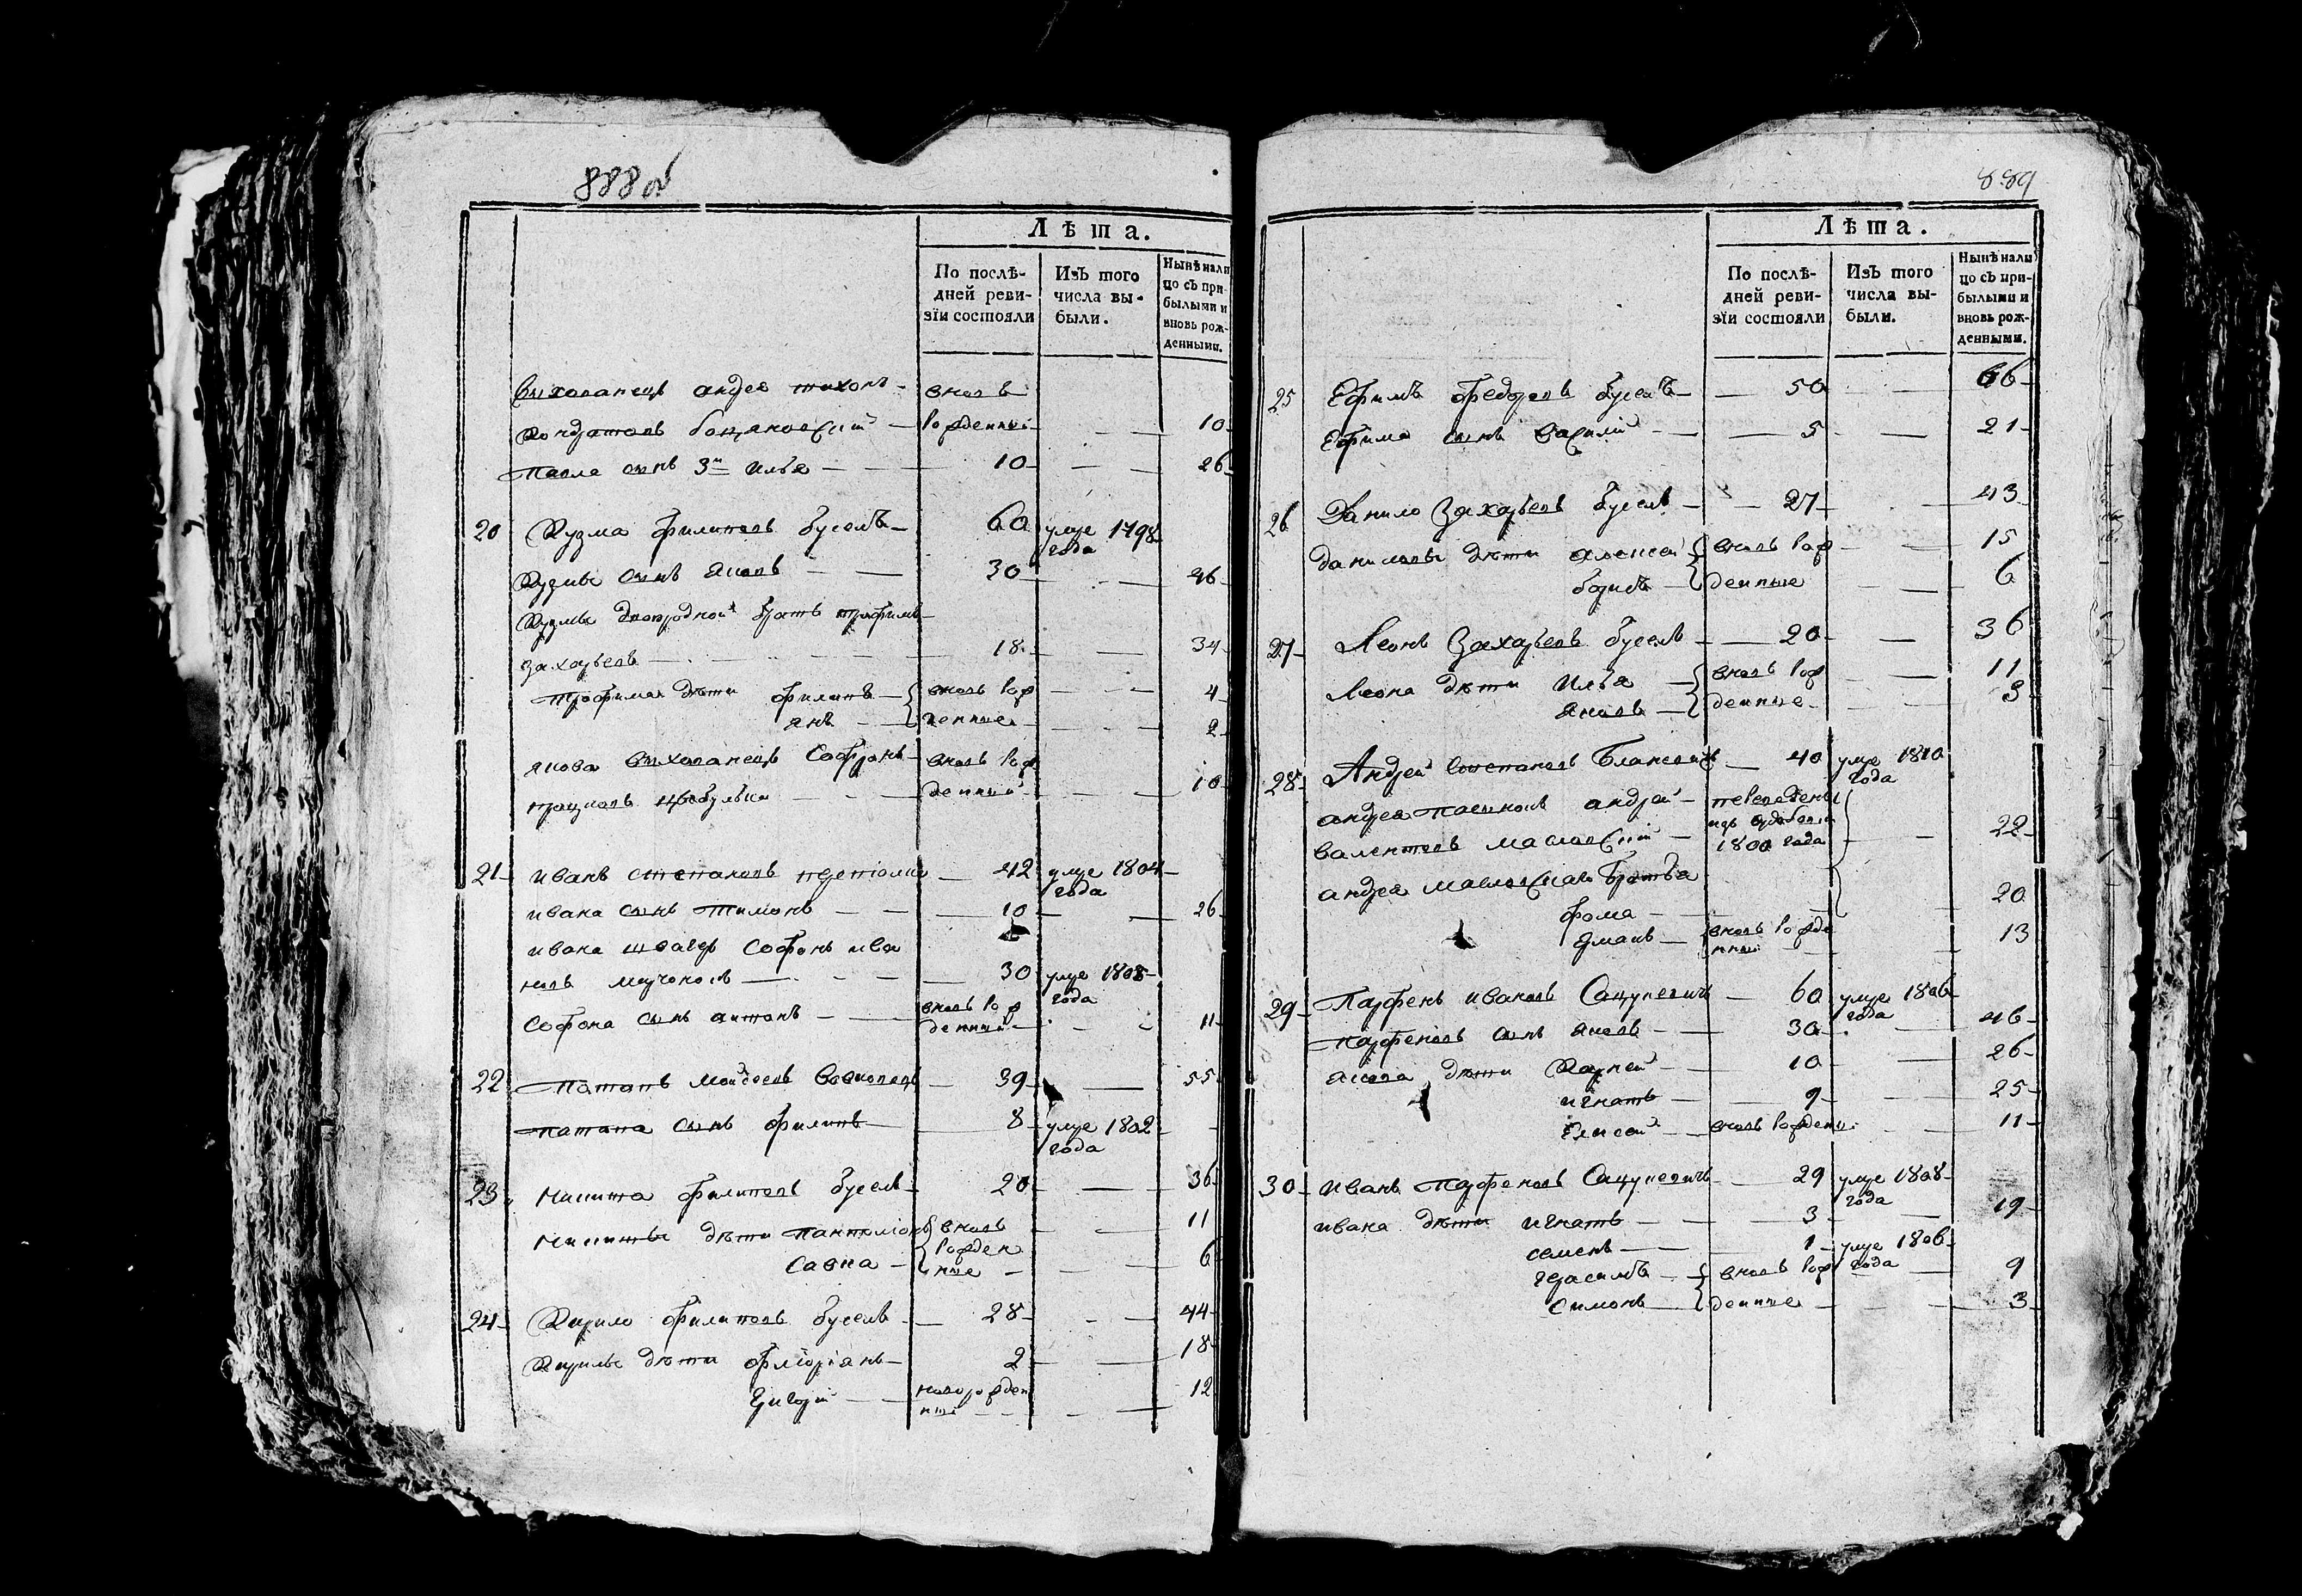 888об
Лѣта.
По послѣ-
дней реви-
зїи состояли
Изъ того
числа вы-
были.
Нынѣ нали
цо съ при-
былыми и
вновь рож-
денными.
выхованецъ андрея тихонъ вновь
Кондратовъ рожденный 10
Павла сынъ 3й илья 10 26
20 Кузма филиповъ буселъ 60 умре 1798
года
Кузмы сынъ яковъ 30 46
Кузмы двоюродной братъ трофимъ
захарьевъ 18 34
трофима дѣти филипъ вновь рож 4
янъ денные 2
якова выхованецъ Софронъ вновь рож
денный 10
21 иванъ степановъ 42 умре 1804
года
ивана сынъ тимонъ 10 26
ивана швагеръ софонъ ива
новъ 30 умре 1808
года
софона сынъ антонъ вновь рож
денный 11
22 Потапъ 39 55
потапа сынъ филипъ 8 умре 1802
года
23 никита филиповъ буселъ 20 36
никиты дѣти пантелїонъ вновь 11
савка рожден
ные 6
24 Кирило филиповъ бусель 28 44
Кирилы дѣти флїорїанъ 2 18
григорїй новорожден
ный 12
889
Лѣта.
По послѣ-
дней реви-
зїи состояли
Изъ того
числа вы-
были.
Нынѣ нали
цо съ при-
былыми и
вновь рож-
денными.
25 Ефимъ федоровъ буселъ 50 66
Ефима сынъ василїй 5 21
26 Данило Захарьевъ бусель 27 43
данилы дѣти алексей вновь рож 15
борисъ денные 6
27 Леонъ Захарьевъ бусель 20 36
Леона дѣти илья вновь рож 11
яковъ денные 3
28 Андрей степановъ 40 умре 1810
года
андрея пасынокъ андрей переведены
изъ
валентовъ масловскїй 1800 года 22
андрея масловскаго братья
фома 20
романъ вновь рожде
нный 13
29 Парфенъ ивановъ Сацукевичъ 60 умре 1806
года
парфеновъ сынъ яковъ 30 46
якова дѣти Карней 10 26
игнатъ 9 25
Елисей вновь рожденн 11
30 иванъ парфеновъ Сацукевичъ 29 умре 1808
года
ивана дѣти игнатъ 3 19
семенъ 1 умре 1806
года
герасимъ вновь рож 9
симонъ денные 3